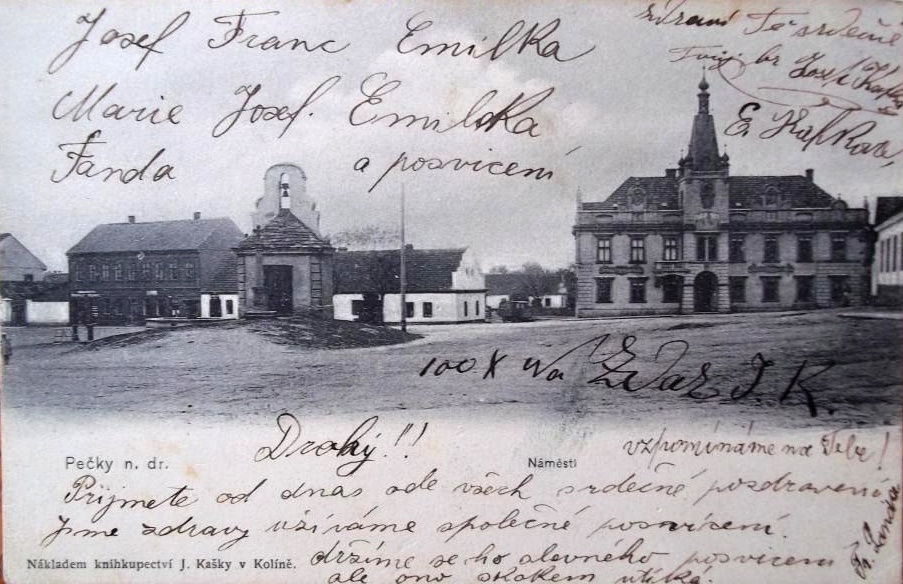 Josef Franc Emilka
Marie Josef. Emilka
Fanda a posvícení
zdraví Tě srdečně
Tvůj br Josef Kafka
E. Kafková,
100 X na Zdar J. K.
Drahý!!
vzpomínáme na Tebe!
Pečky n. dr.
Náměstí
Přijmete od dnas ode všech srdečné pozdravení
Jsme zdravy užíváme společné posvícení.
držíme se ho slavného posvícení
ale ono skokem utíká.
Fr. Fanda
Nákladem knihkupectví J. Kašky v Kolíně.